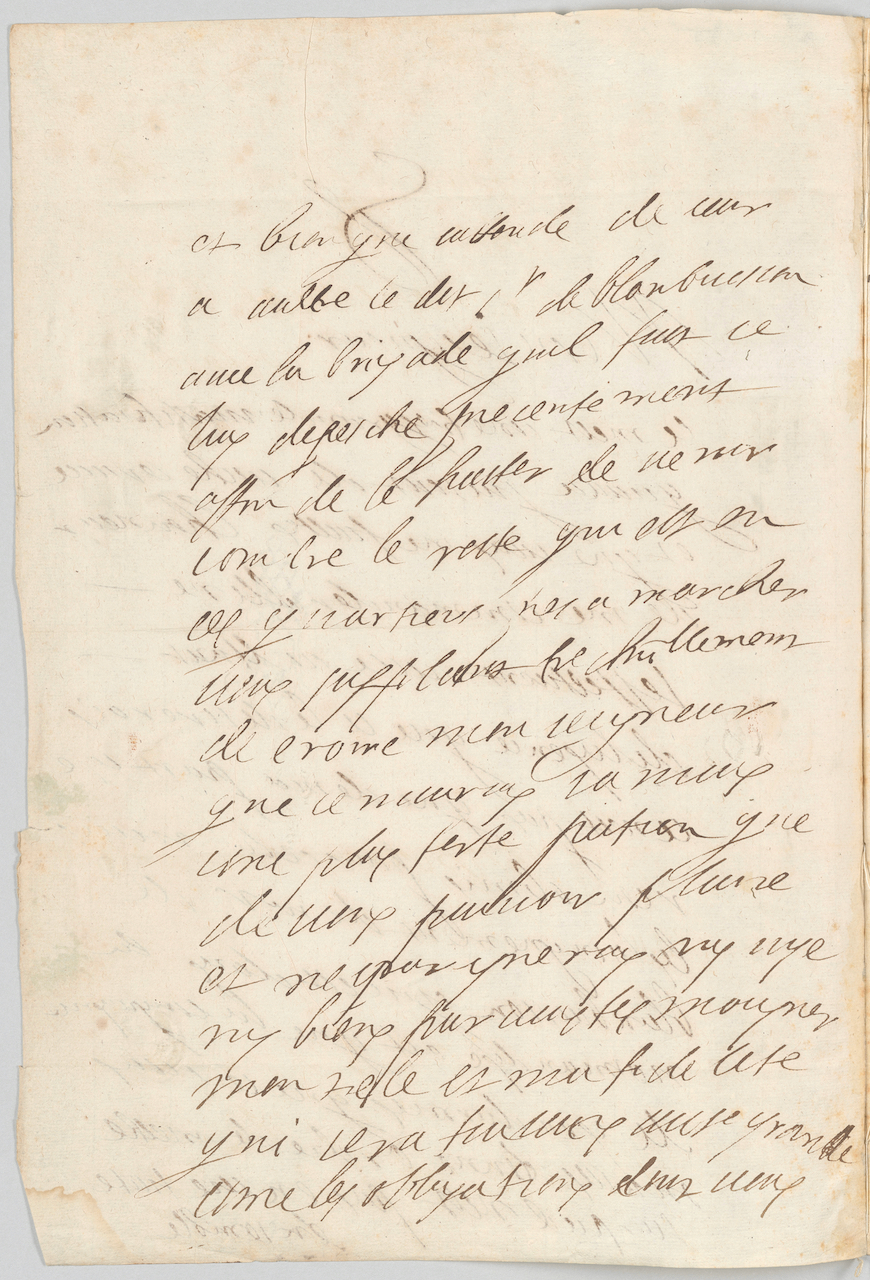 et bien que iatande de iour
a aultre le dit sr de blanbuison
avec la brigade quil ie
luy depesche precentement
affin de le haster de venir
le reste qui est en
ces quartiers a marcher
vous suppliant tres
de croire monseigneur
que ie nauray iamais
une plus forte pation que
de vous pouvoir plaire
et nepargneray ny vye
ny biens pour vous tesmoygner
mon zele et ma fidelite
qui cera grande
come les obligations dont vous